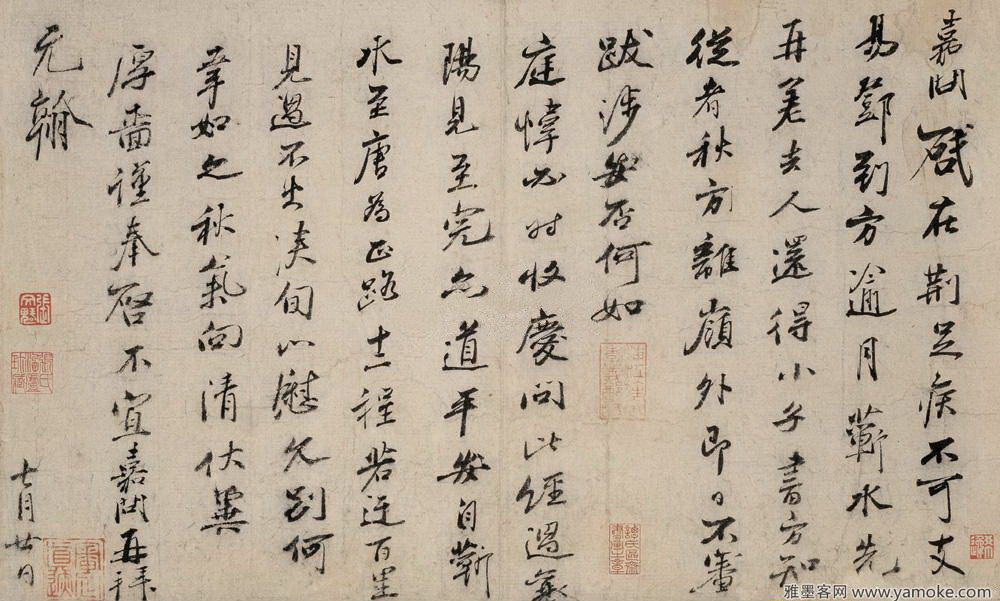 嘉問啟在荆足疾不可支
易鄧到方逾月蘄水先
再差去人還得小子書方知
從者秋方離嶺外即日不審
跋涉安否何如
庭幃必时收慶問此經過襄
陽見至完亦道平安自蘄
水至唐為正路十二程若迂百里
見過不出浹旬以慰久别何
幸如之秋氣向清伏冀
厚嗇謹奉啓不宣嘉問再拜
元翰
七月廿日
雅墨客网 www.yamoke.com